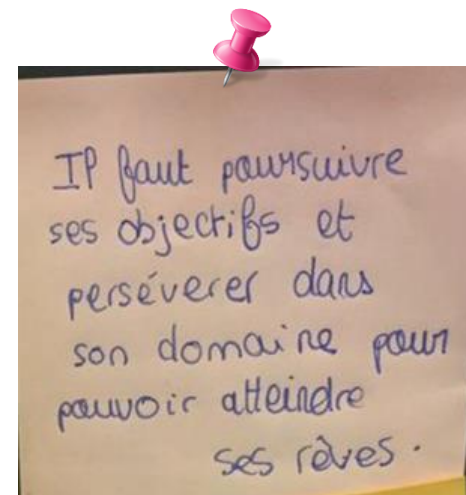 Il faut poursuivre
ses objectifs et
persévérer dans
son domaine pour
pouvoir atteindre
ses rêves.